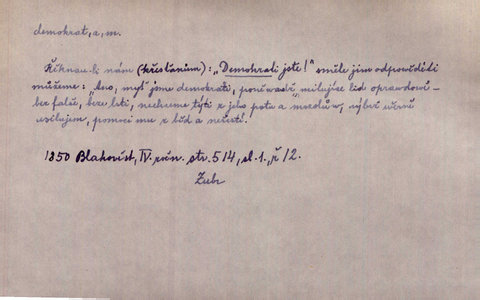 demokrat, a, m.
Řeknou-li nám (křesťanům): „Demokrati jste!" směle jim odpověděti
můžeme: „Ano, my jsme demokrati, poněwadž milujíce lid oprawdowě –
bez falše, beze lsti, nechceme týti z jeho potu a mozolůw, nýbrž věrně
usilujem, pomoci mu z bíd a neřestí.
1850 Blahověst, IV. roč. str. 514, sl. 1., ř. 12.
Zubr